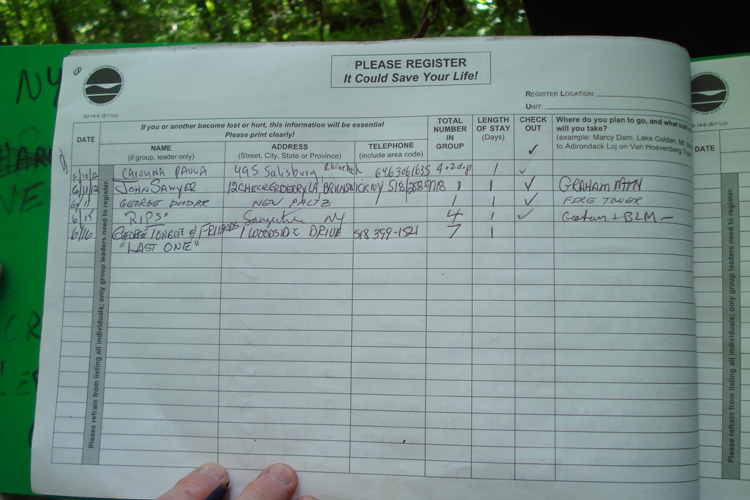 NY
PLEASE REGISTER
It Could Save Your Life!
REGISTER LOCATION
UNIT:
If you or another become lost or hurt, this information will be essential
Please print clearly!
DATE
NAME
(if group, leader only)
ADDRESS
(Street, City, State or Province)
TELEPHONE
(include area code)
TOTAL NUMBER IN GROUP
LENGTH OF STAY
(Days)
CHECK OUT
✓
Where do you plan to go, and what
will you take?
(example: Marcy Dam, Lake Colden, Mt
to Adirondack Loj on Van Hoevenberg
DATE
CAROLINA PAULA 495 Salisbury, Rhinebeck 6463061635 4+2dog 1 ✓
6/11/12 JOHN SAWYER BRUNSWICK NY 518 1 1 ✓ GRAHAM MTN
GEORGE DUDAR NEW PALTZ 1 1 ✓ FIRE TOWER
6/15 "RIPS" Saugerties NY 4 1 ✓ Graham + BLM
6/16 GEORGE & FRIENDS 1 WOODSIDE DRIVE 518 399-1521 7 1
"LAST ONE"
Please refrain from listing all individuals; only group leaders need to register.
Please refrain from listing all individuals; only group